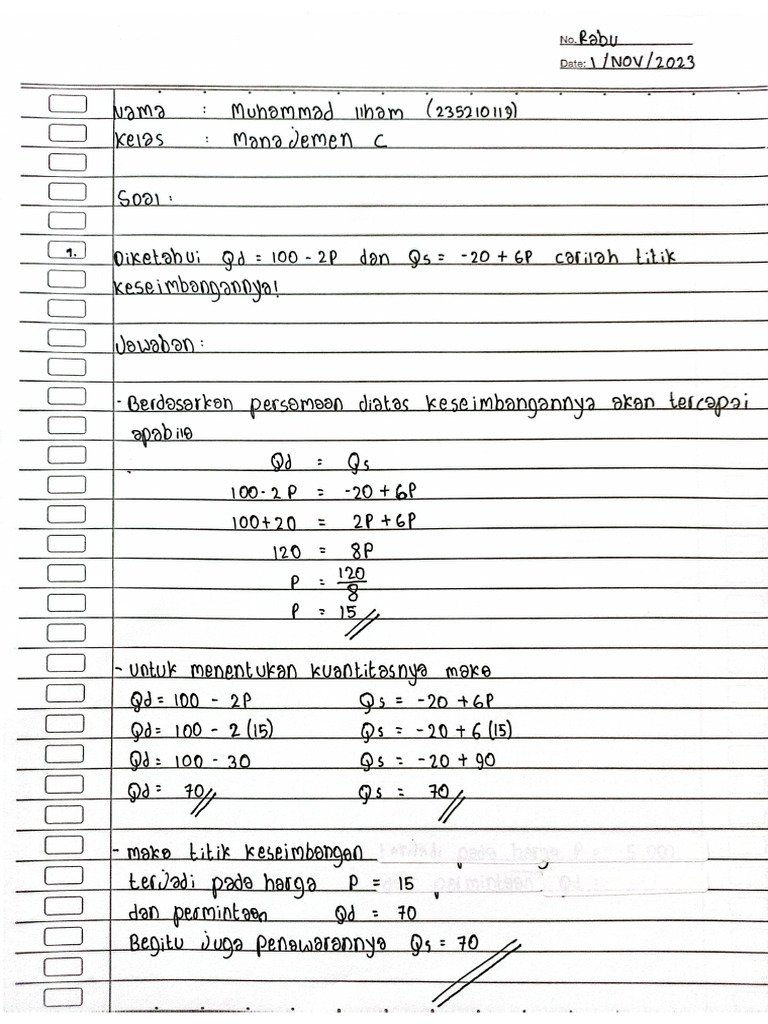 No. Rabu
Date: 1/NOV/2023
Nama : Muhammad Ilham (235210119)
Kelas : Manajemen C
Soal :
1. Diketahui Qd = 100 - 2P dan Qs = -20 + 6P carilah titik
keseimbangannya!
Jawaban :
- Berdasarkan persamaan diatas keseimbangannya akan tercapai
apabila
Qd = Qs
100 - 2P = -20 + 6P
100 + 20 = 2P + 6P
120 = 8P
P = 120/8
P = 15
- untuk menentukan kuantitasnya maka
Qd = 100 - 2P Qs = -20 + 6P
Qd = 100 - 2 (15) Qs = -20 + 6 (15)
Qd = 100 - 30 Qs = -20 + 90
Qd = 70 Qs = 70
- maka titik keseimbangan
terjadi pada harga P = 15
dan permintaan Qd = 70
Begitu juga penawarannya Qs = 70